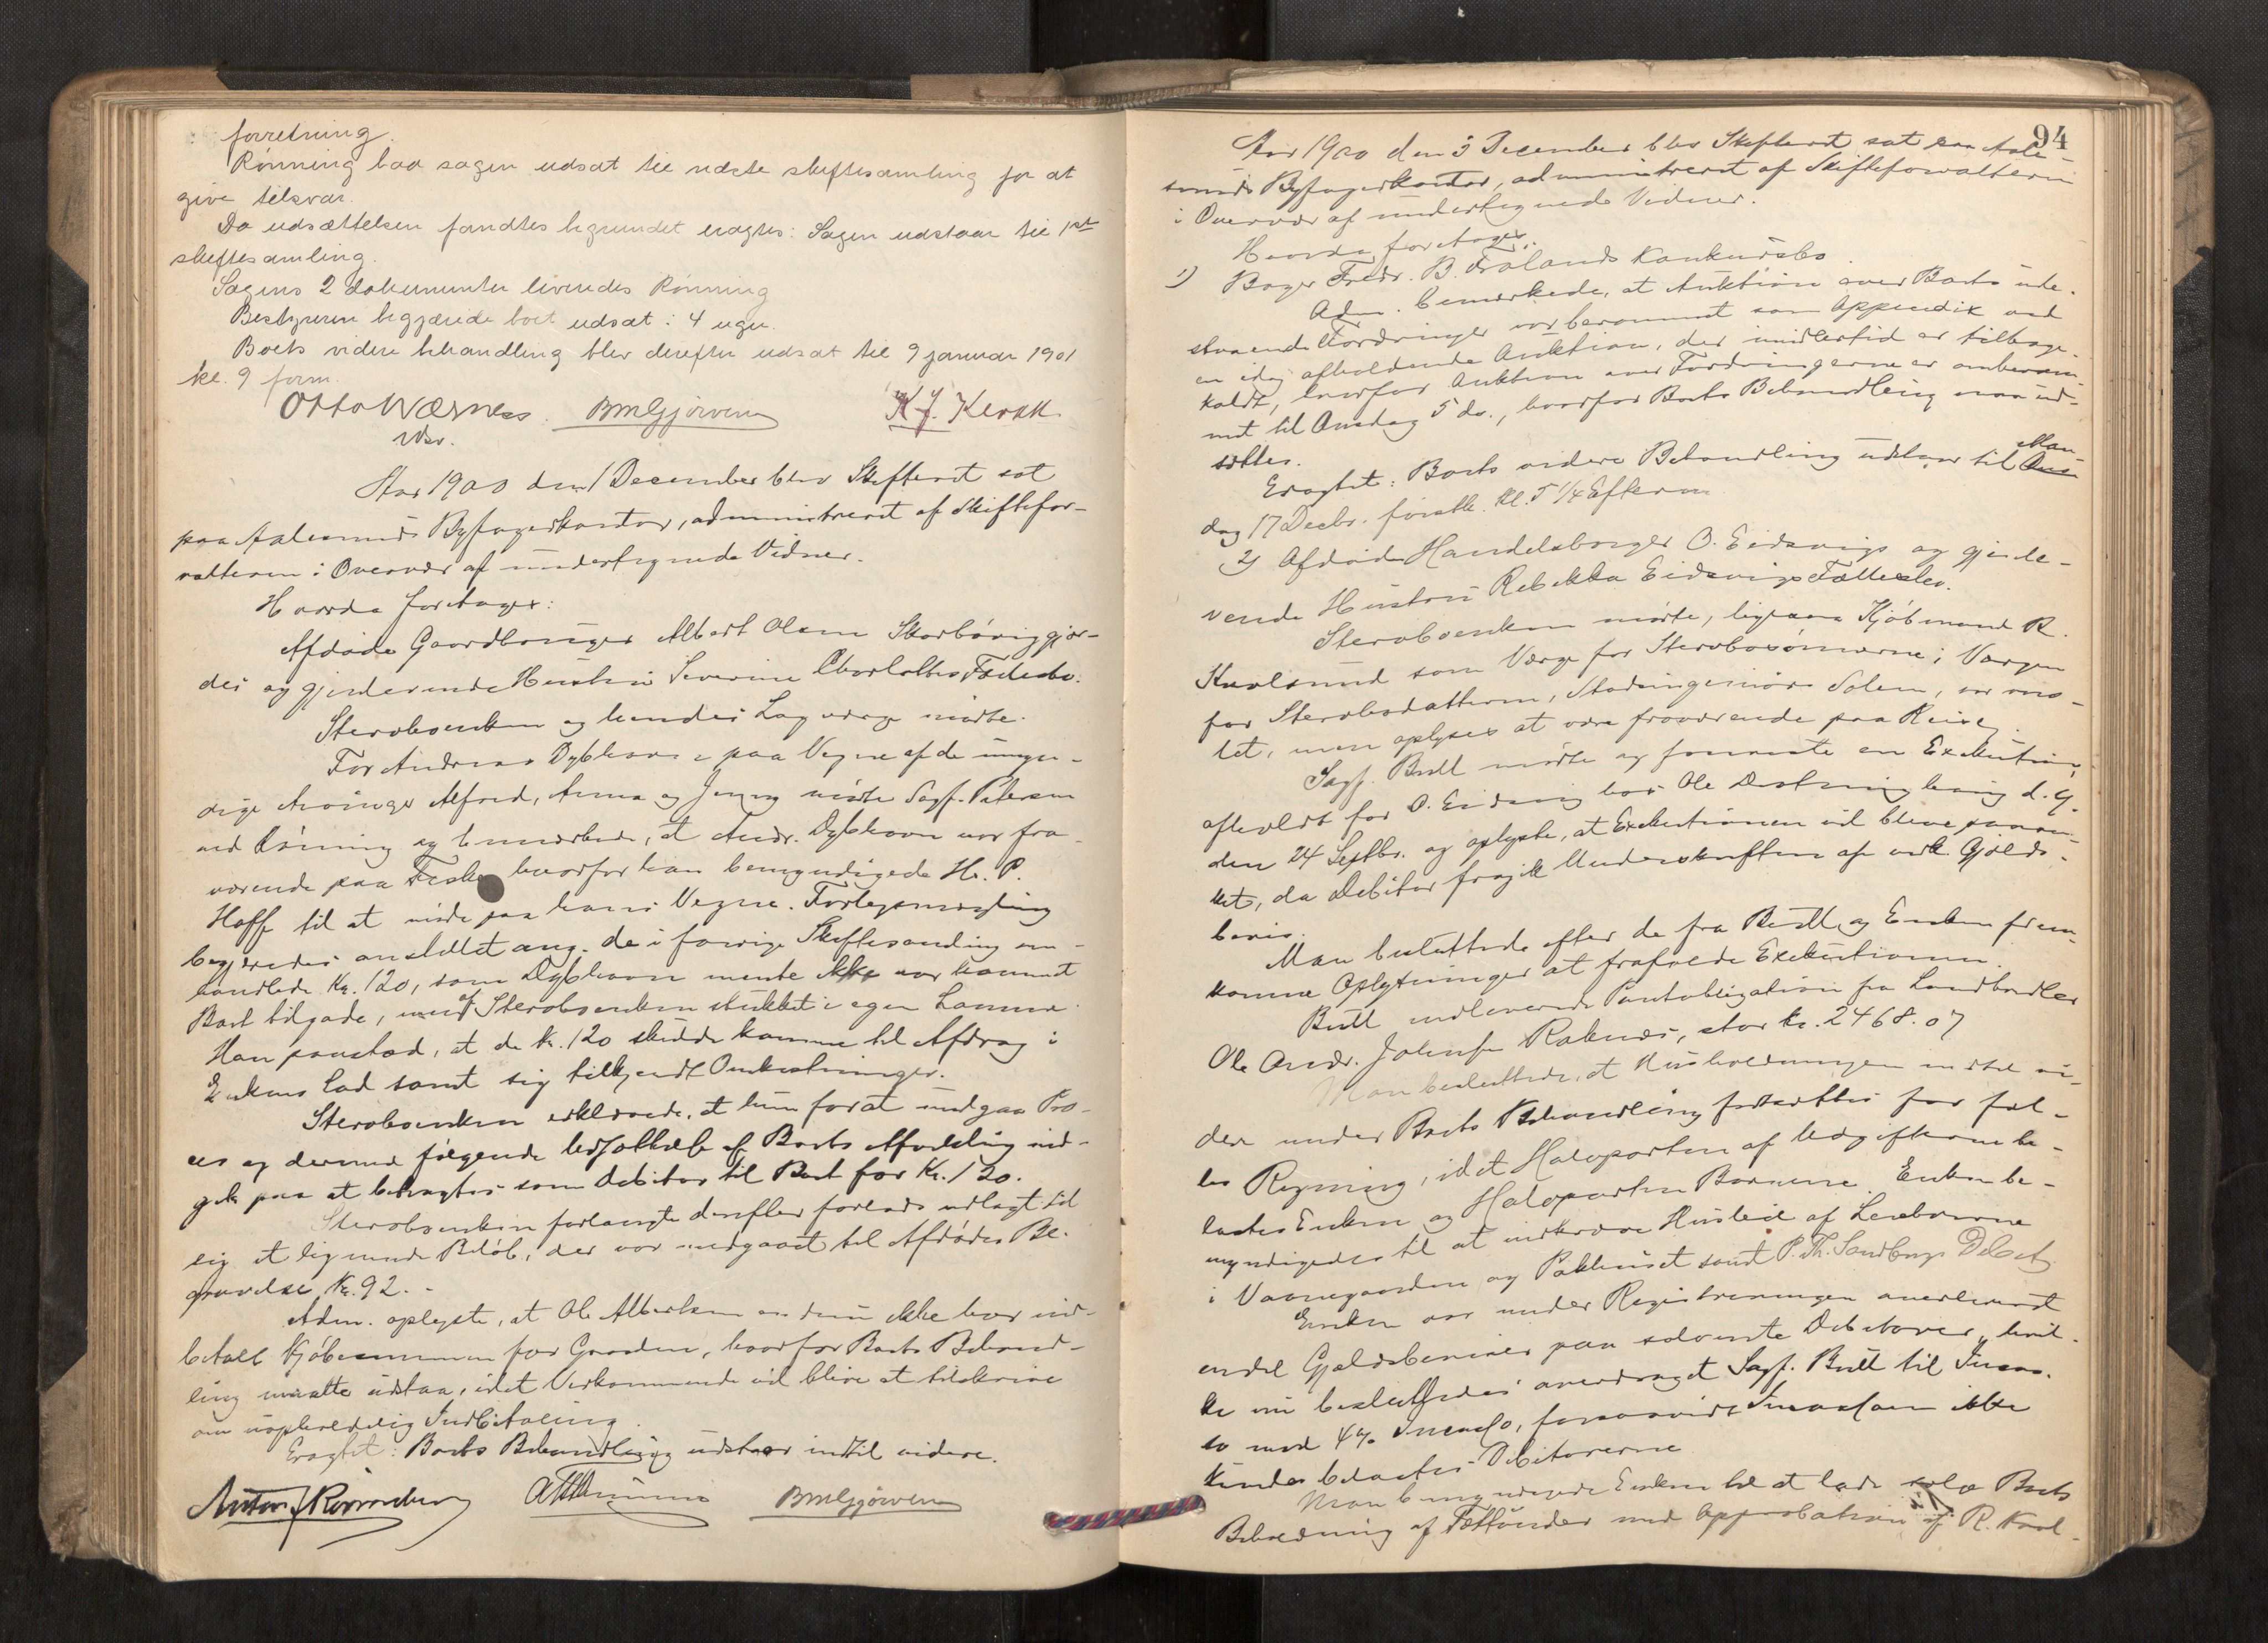 forretning.
Rønning bad sagen udsat til næste skiftesamling for at
give tilsvar.
Da udsættelsen fandtes begrundet eragtes: Sagen udstaar til 1ste
skiftesamling.
Sagens 2 dokumenter leveredes Rønning
Bestyreren begjærede boet udsat i 4 uger.
Boets videre behandling blev derefter udsat til 9 januar 1901
kl. 9 form.
Otto Wærness BMGjørven K. J.
Aar 1900 den 1 December blev Skifteret sat
paa Aalesunds Byfogedkontor, administreret af Skiftefor-
valteren i Overvær af undertegnede Vidner.
Hvorda foretoges:
Afdøde Gaardbruger Albert Olsen
des og gjenlevende Hustru Severine Charlottes Fællesbo.
Stervboenken og hendes Lagværge mødte.
For Andreas Dybhavn paa Vegne af de umyn-
dige Arvinger Alfred, Anna og Jenny mødte Sagf. Petersen
ved Rønning og bemærkede, at Andr. Dybhavn var fra-
værende paa Fiske hvorfor han bemyndigede Hr. P.
Hoff til at møde paa hans Vegne. Forligsmægling
begjæredes anstillet ang. de i forrige Skiftesamling om-
handlede Kr. 120, som Dybhavn mente ikke var kommet
Boet tilgode, men af Stervboenken stukket i egen Lomme.
Han paastod, at de Kr. 120 skulde komme til Afdrag i
Enkens Lod samt sig tilkjendt Omkostninger.
Stervboenken erklærede, at hun for at undgaa Pro-
ces og dermed følgende af Boets Afvikling ind-
gik paa at betragtes som Debitor til Boet for Kr. 120.
Stervboenken forlangte derefter forlods udlagt til
sig et lignende Beløb, der var medgaaet til Afdødes Be-
gravelse Kr. 92.-
Adm. oplyste, at Ole Albertsen endnu ikke har ind-
betalt Kjøbesummen for Gaarden, hvorfor Boets Behand-
ling maatte udstaa, idet Vedkommende vil blive at tilskrive
om uopholdelig Indbetaling.
Eragtet: Boets Behandling udstaar indtil videre.
Anton J. Rønneberg BMGjørven
94
Aar 1900 den 3 December blev Skifteret sat paa Aale-
sunds Byfogedkontor, administreret af Skifteforvalteren
i Overvær af undertegnede Vidner.
Hvorda foretoges:
1) Bager Fredr. B. Frølands Konkursbo.
Adm. bemærkede, at Auktion over Boets ude-
staaende Fordringer var berammet som Appendix ved
en idag afholdende Auktion, der imidlertid er tilbage-
kaldt, hvorfor Auktion over Fordringerne er omberam-
met til Onsdag 5 ds., hvorfor Boets Behandling maa ud-
sættes.
Eragtet: Boets videre Behandling udstaar til Man-
dag 17 Decbr. førstk. kl. 5 1/4 Efterm.
2) Afdøde Handelsborger O. Eidsvigs og gjenle-
vende Hustru Rebekka Eidsvigs Fællesbo.
Stervboenken mødte, ligesaa Kjøbmand R.
Kvalsund som Værge for Stervbosønnerne; Værgen
for Stervbodatteren, Stadsingeniør Solem, var vars-
let, men oplyses at være fraværende paa Reise.
Sagf. Bull mødte og foreviste en Exekution,
afholdt for O. Eidsvig hos Ole d. y.
den 24 Septbr. og oplyste, at Exekutionen vil blive paaan-
ket, da Debitor fragik Underskriften af vedk. Gjælds-
bevis.
Man besluttede efter de fra Bull og Enken frem-
komne Oplysninger at frafalde Exekutionen.
Bull indleverede Pantobligation fra Landhandler
Ole Andr. Johnsen Raknæs, stor kr. 2468.07
Man besluttede, at Husholdningen indtil vi-
dere under Boets Behandling fortsættes for fæl-
les Regning, idet Halvparten af Udgifterne be-
lastes Enken og Halvparten Børnene. Enken be-
myndigedes til at indkræve Husleie af Leieboerne
i Vaanegaarden og Pakhuset samt P. Th. Sandborgs Debet.
Enken var under Registreringen overleveret
endel Gjældsbeviser paa solvente Debitorer, hvil-
ke nu besluttedes overdraget Sagf. Bull til Incas-
so mod 4% Incasso, forsaavidt Incassoen ikke
kunde belastes Debitorerne.
Man bemyndigede Enken til at lade sælge Boets
Beholdning af Tøftønder med Approbation af R. Kval-